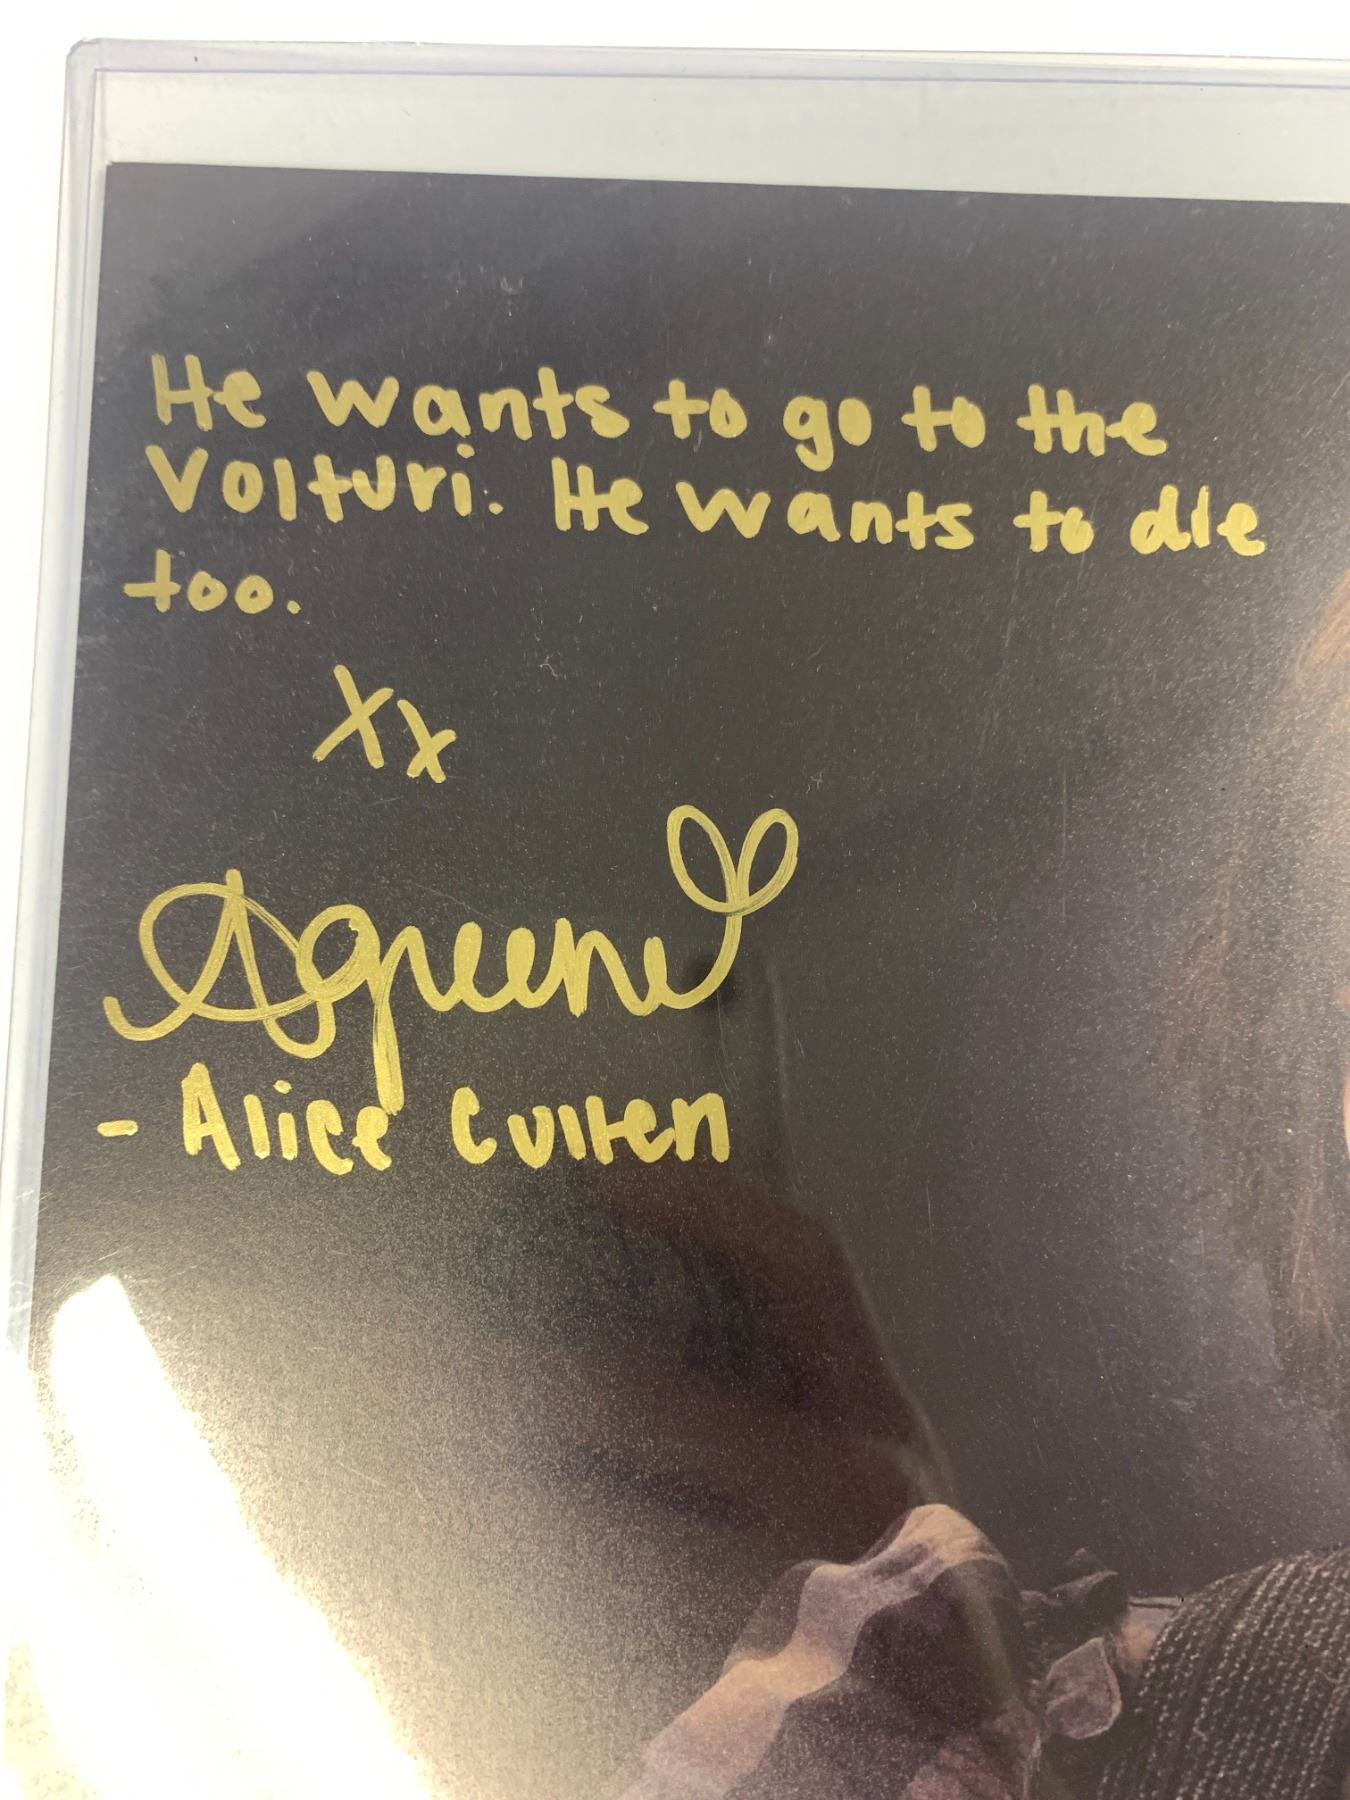 He wants to go to the
Volturi. He wants to die
too.
xx
Agreene
- Alice Cullen